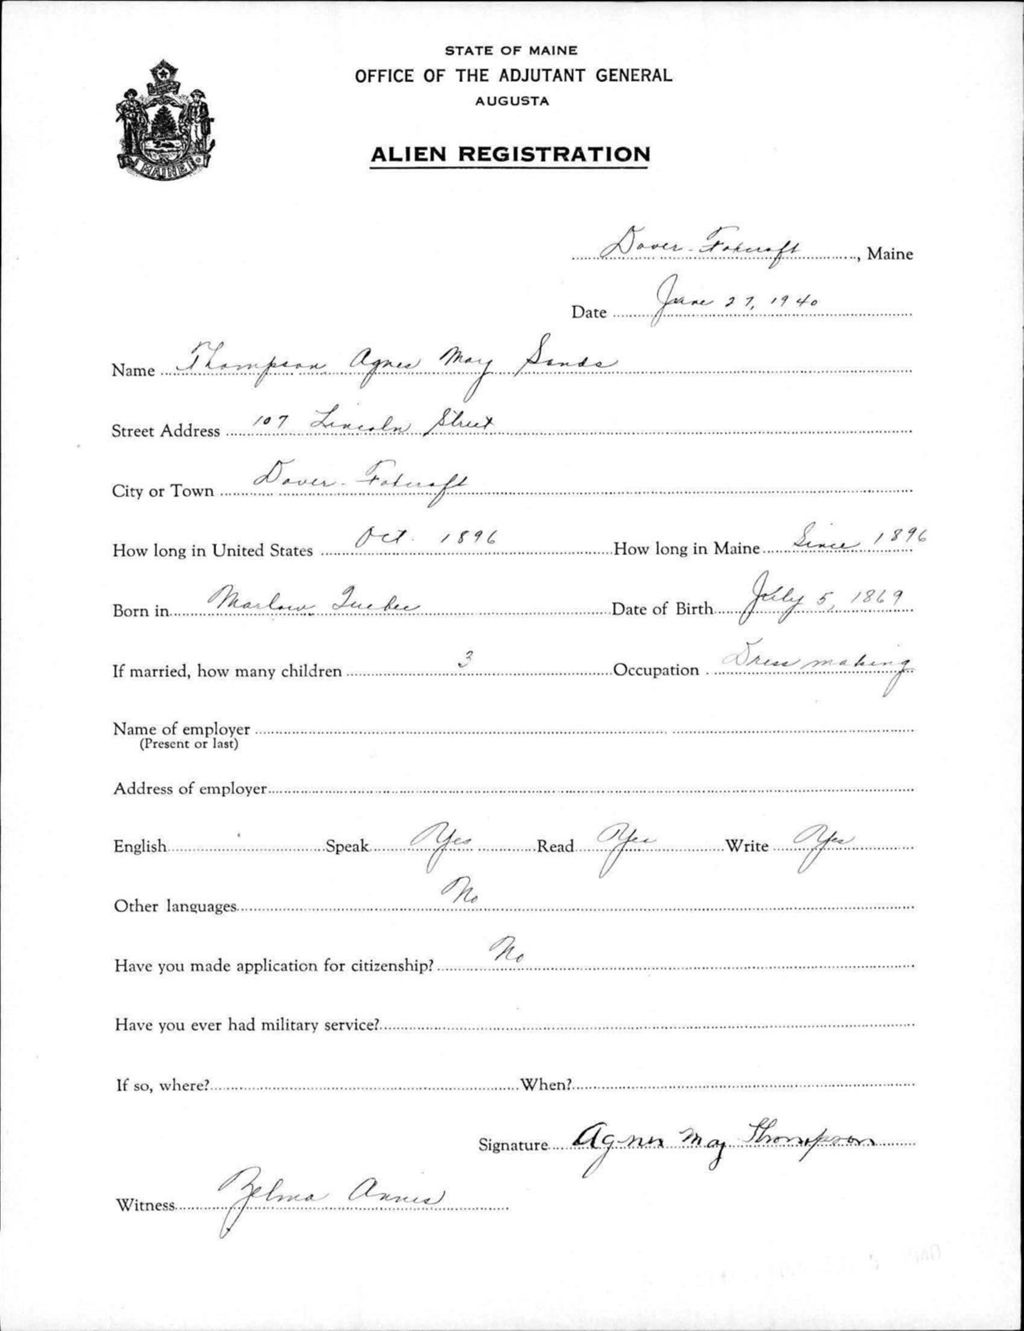 STATE OF MAINE
OFFICE OF THE ADJUTANT GENERAL
AUGUSTA
ALIEN REGISTRATION
MAINE
Dover-Foxcroft, Maine
Date June 27, 1940
Name Thompson Agnes May Sands
Street Address 107 Lincoln Street
City or Town Dover-Foxcroft
How long in United States Oct. 1896 How long in Maine Since 1896
Born in Marlow, Quebec Date of Birth July 5, 1869
If married, how many children 3 Occupation Dress making
Name of employer
(Present or last)
Address of employer
English Speak Yes Read Yes Write Yes
Other languages No
Have you made application for citizenship? No
Have you ever had military service?
If so, where? When?
Signature Agnes May Thompson
Witness Zelma Annis